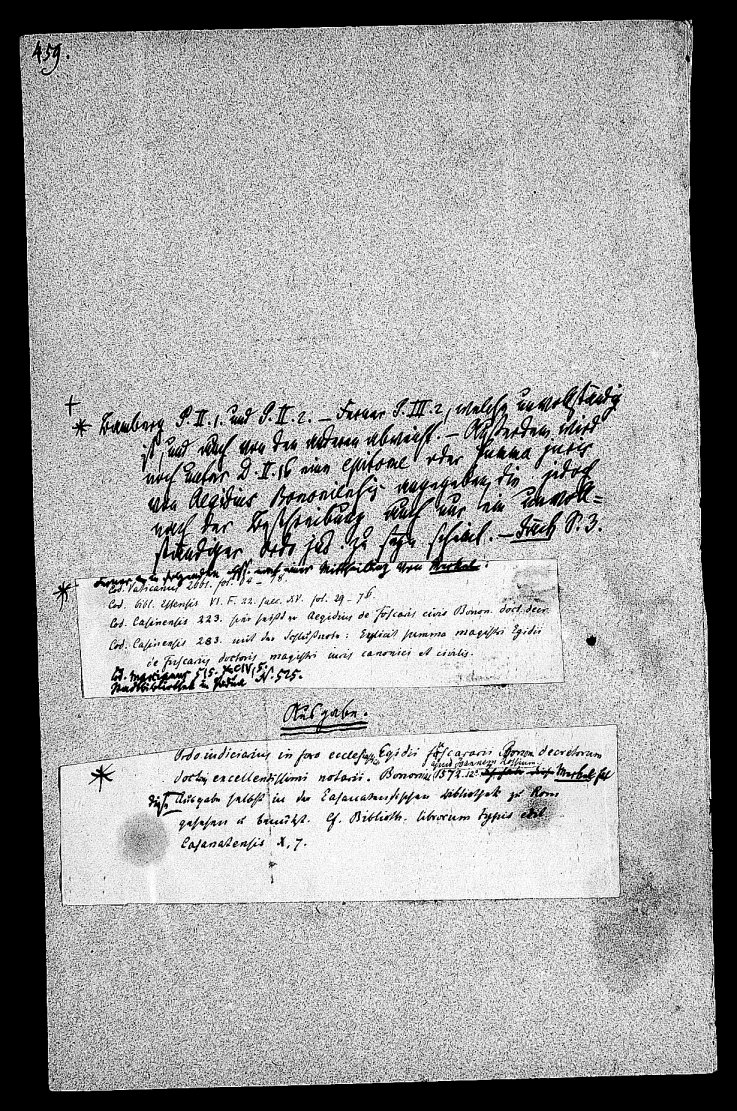 459.
+
* Bamberg P. II. 1. und P. II. 2. – Ferner P. III. 2, welche unvollständig
ist, und auch von den anderen abweicht. – Außerdem wird
noch unter D. II. 16 eine epitome oder summa juris
von Aegidius Bononiensis angegeben, die jedoch
nach der Beschreibung auch nur ein unvoll=
ständiger ordo jud. zu seyn scheint. – Druck S. 3.
* Ferner in folgenden Hss. nach einer Mittheilung von Merkel:
Cod. Vaticanus fol.
Cod. bibl. Estensis VI. F. 22. saec. XV. fol. 29 – 76.
Cod. Casinensis 223. hier heißt er Aegidius de Foscaris civis Bonon. doct. decr.
Cod. Casinensis 283. mit der Schlußnote: Explicit summa magistri Egidii
de Foscaris doctoris magistri iuris canonici et civilis.
Cod. Marcianus 515.
Stadtbibliothek in Padua N. 525.
Ausgabe.
Ordo iudiciarius in foro ecclesiast. Egidii foscararii Bonon. decretorum
* doctoris excellentissimi notariis. Bononiae 1572. 12. Merkel hat
diese Ausgabe selbst in der Casanatensischen Bibliothek zu Rom
gesehen u benützt. Cf. Biblioth. librorum typis edit.
Casanatensis X, 7.